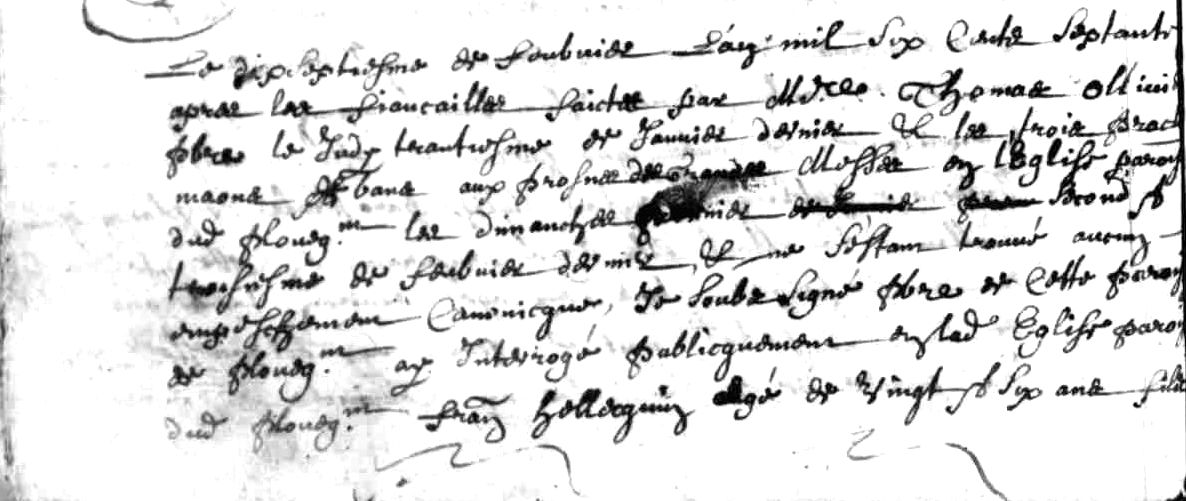 Le dixseptiesme de Feubvrier L'an mil six Cents septante
apres les fiancailles faictes par M.re Thomas Ollivi
pbre le Judy trantiesme de Janvier dernier & les trois procl
maons de bans aux prosnes des grandes Messes en l'Eglise paroi
dud Ploueg.m les dimanches dernier second &
troisiesme de Feubvrier dernier & ne s'estant trouvé aucun
empeschement Canonicque, Je soubs signé pbre de Cette paroi
de Ploueg.m ay Interrogé publicquement en lad Eglise paroi
dud Ploueg.m Fran Hellecquin agé de vingt & six ans fils